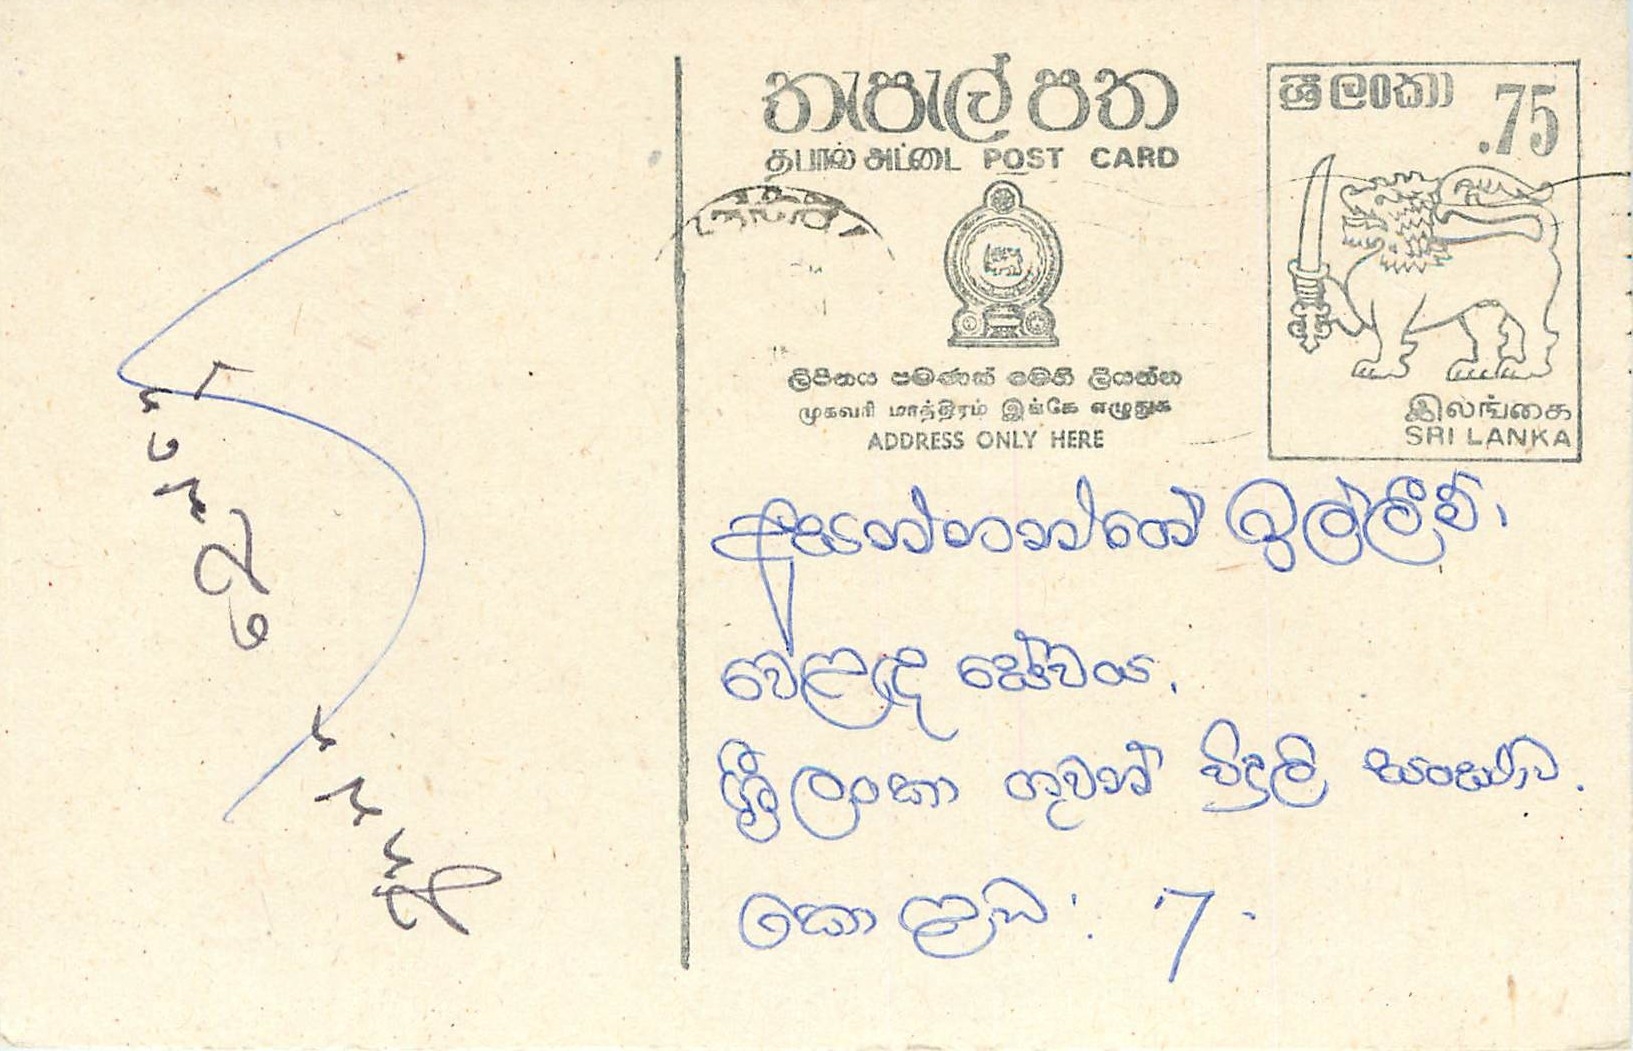 තැපැල් පත
தபால் அட்டை POST CARD
ශ්‍රී ලංකා .75
ලිපිනය පමණක් මෙහි ලියන්න
முகவரி மாத்திரம் இங்கே எழுதுக
ADDRESS ONLY HERE
இலங்கை
SRI LANKA
අසන්නන්ගේ ඉල්ලීම්.
වෙළඳ සේවය.
ශ්‍රී ලංකා ගුවන් විදුලි සංස්ථාව.
කොළඹ: 7.